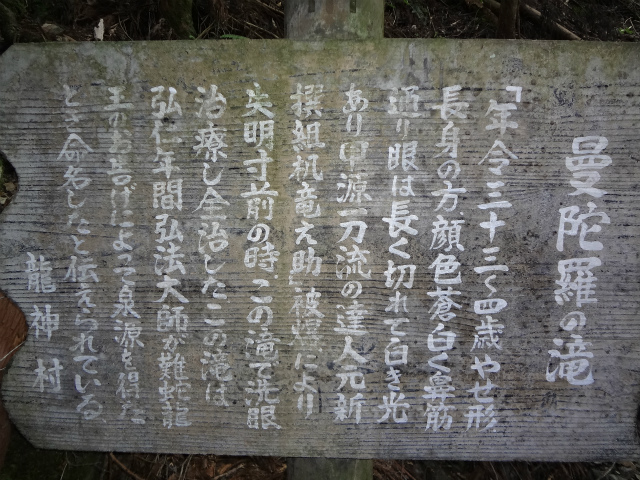 曼陀羅の滝
「年令三十三〜四歳やせ形
長身の方顔色蒼白く鼻筋
通り眼は長く切れて白き光
あり甲源一刀流の達人元新
撰組机竜之助」被爆により
失明寸前の時この滝で洗眼
治療し全治したこの滝は
弘仁年間弘法大師が難蛇龍
王のお告げによって泉源を得た
とき命名したと伝えられている
龍神村